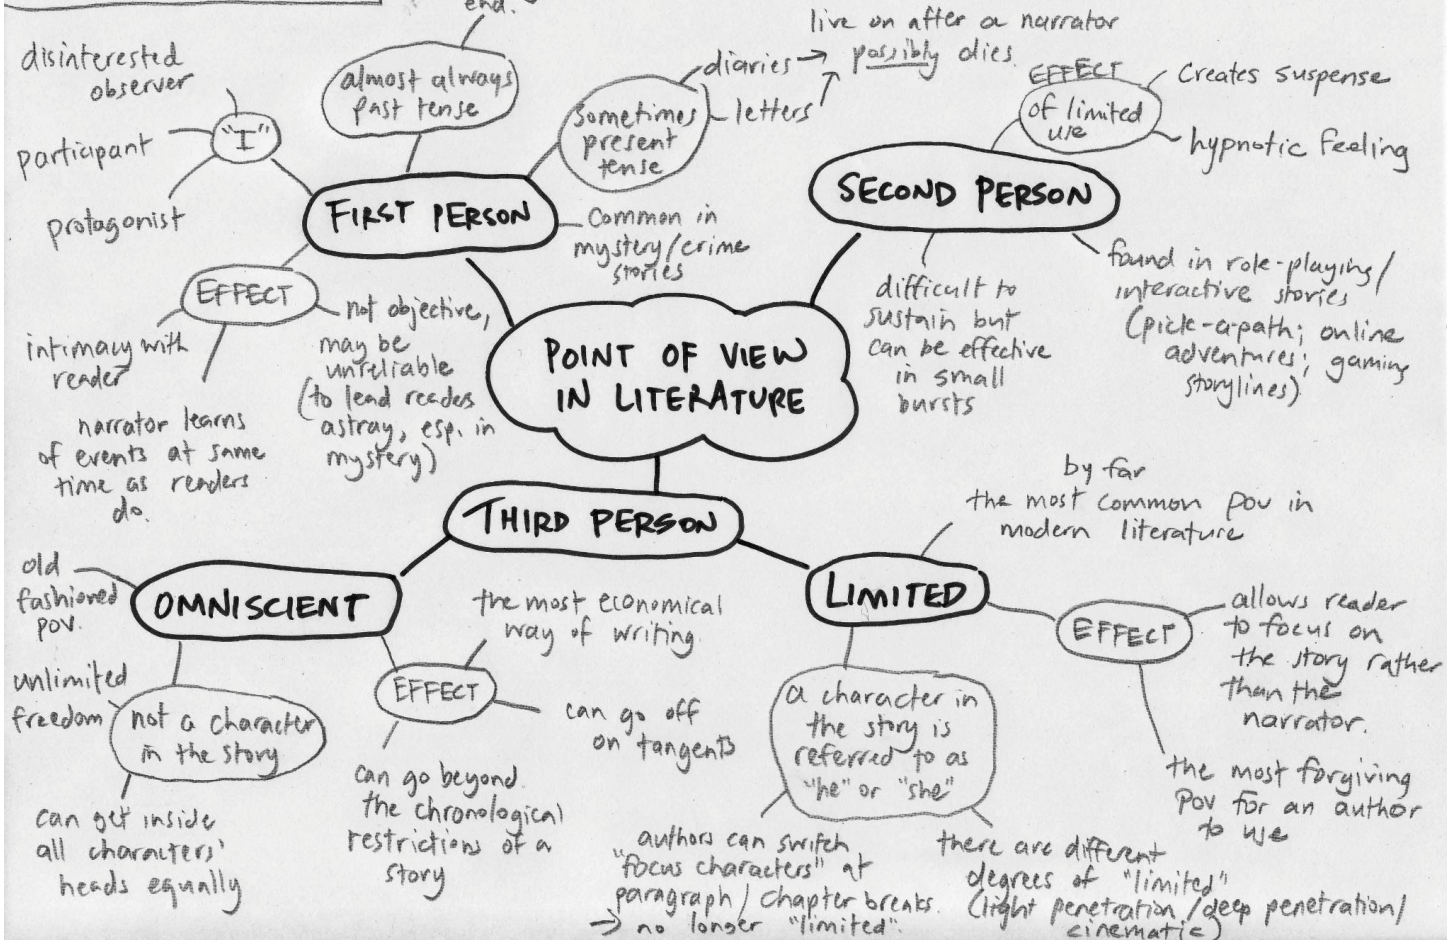 end.
disinterested
observer
"I"
participant
protagonist
almost always
past tense
sometimes
present
tense
diaries →
letters
live on after a narrator
possibly dies.
FIRST PERSON
Common in
mystery/crime
stories
EFFECT
intimacy with
reader
narrator learns
of events at same
time as readers
do.
not objective,
may be
unreliable
(to lead readers
astray, esp. in
mystery)
EFFECT
of limited
use
Creates suspense
hypnotic feeling
SECOND PERSON
difficult to
sustain but
can be effective
in small
bursts
found in role-playing/
interactive stories
(pick-a-path; online
adventures; gaming
storylines)
POINT OF VIEW
IN LITERATURE
THIRD PERSON
OMNISCIENT
old
fashioned
pov.
unlimited
freedom
not a character
in the story
can get inside
all characters'
heads equally
EFFECT
the most economical
way of writing.
can go off
on tangents
can go beyond
the chronological
restrictions of a
story
LIMITED
by far
the most common pov in
modern literature
EFFECT
allows reader
to focus on
the story rather
than the
narrator.
the most forgiving
pov for an author
to use
a character in
the story is
referred to as
"he" or "she"
authors can switch
"focus characters" at
paragraph/chapter breaks.
→ no longer "limited".
there are different
degrees of "limited"
(light penetration/deep penetration/
cinematic)